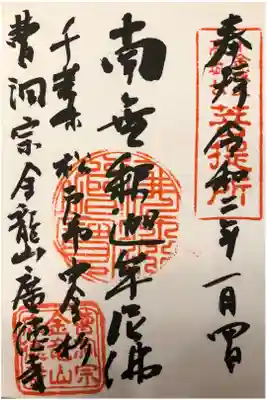 奉拝 令和二年 一月四日
南無釈迦牟尼佛
千葉県松戸市中金杉
曹洞宗金龍山廣徳寺